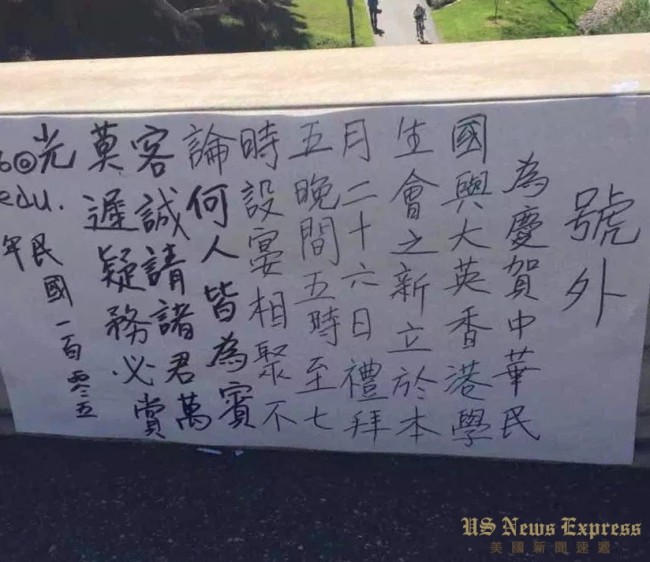 號外
為慶賀中華民
國與大英香港學
生會之新立於本
月二十六日禮拜
五晚間五時至七
時設宴相聚不
論何人皆為賓
客誠請諸君萬
莫遲疑務必賞
光
edu.
民國一百零五
年
US News Express
美國新聞速遞